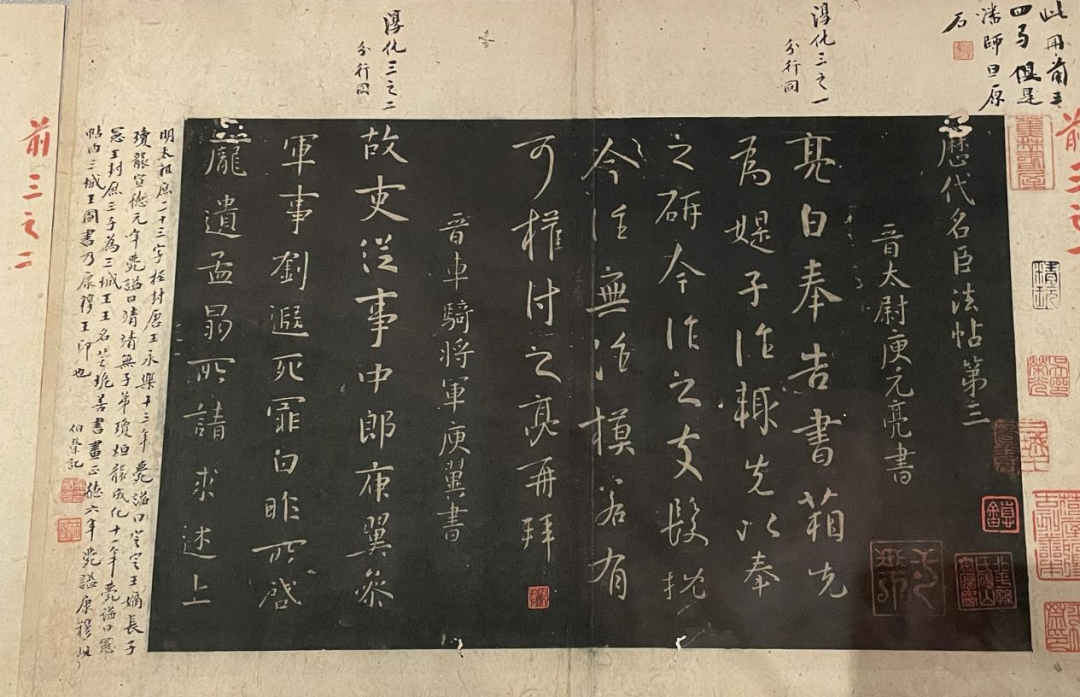 此用前五
四与俱是
潘師旦原
石
前三之一
淳化三之一
分行同
淳化三之二
分行同
歷代名臣法帖第三
晉太尉庾元亮書
亮白奉告書箱先
為媞子作輒先以奉
之研今作之支髮抌
今注無治模若有
可權付之亮再拜
晉車騎將軍庾翼書
故吏從事中郎庾翼參
軍事劉遐死罪白昨所啓
龐遺孟昂所請求述上
明太祖庶二十三字桱封唐王永樂十三年薨謚曰定王嫡長子
瓊襲宣德元年薨謚曰靖清無子弟瓊炟襲成化十一年薨謚曰憲
憲王封庶三子為三城王王名芝垝善書畫正德六年薨謚康穆此
帖內三城王圖書乃康穆王印也
伯榮記
前三之二